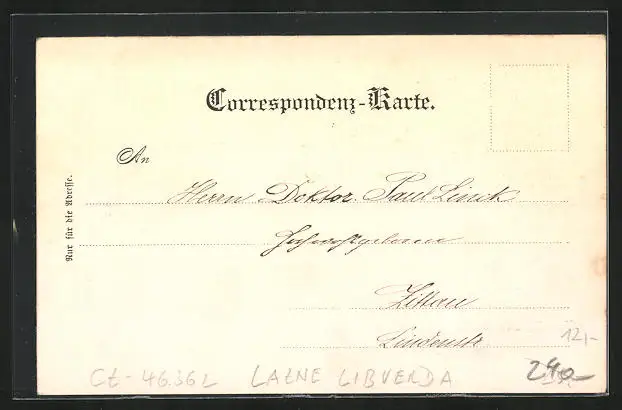 Correspondenz-Karte.
An
Herrn Doktor. Paul Linck
Hochwohlgeboren
Zittau
Lindenstr
Nur für die Adresse.
12,-
CZ-46362 LAZNE LIBVERDA
240-